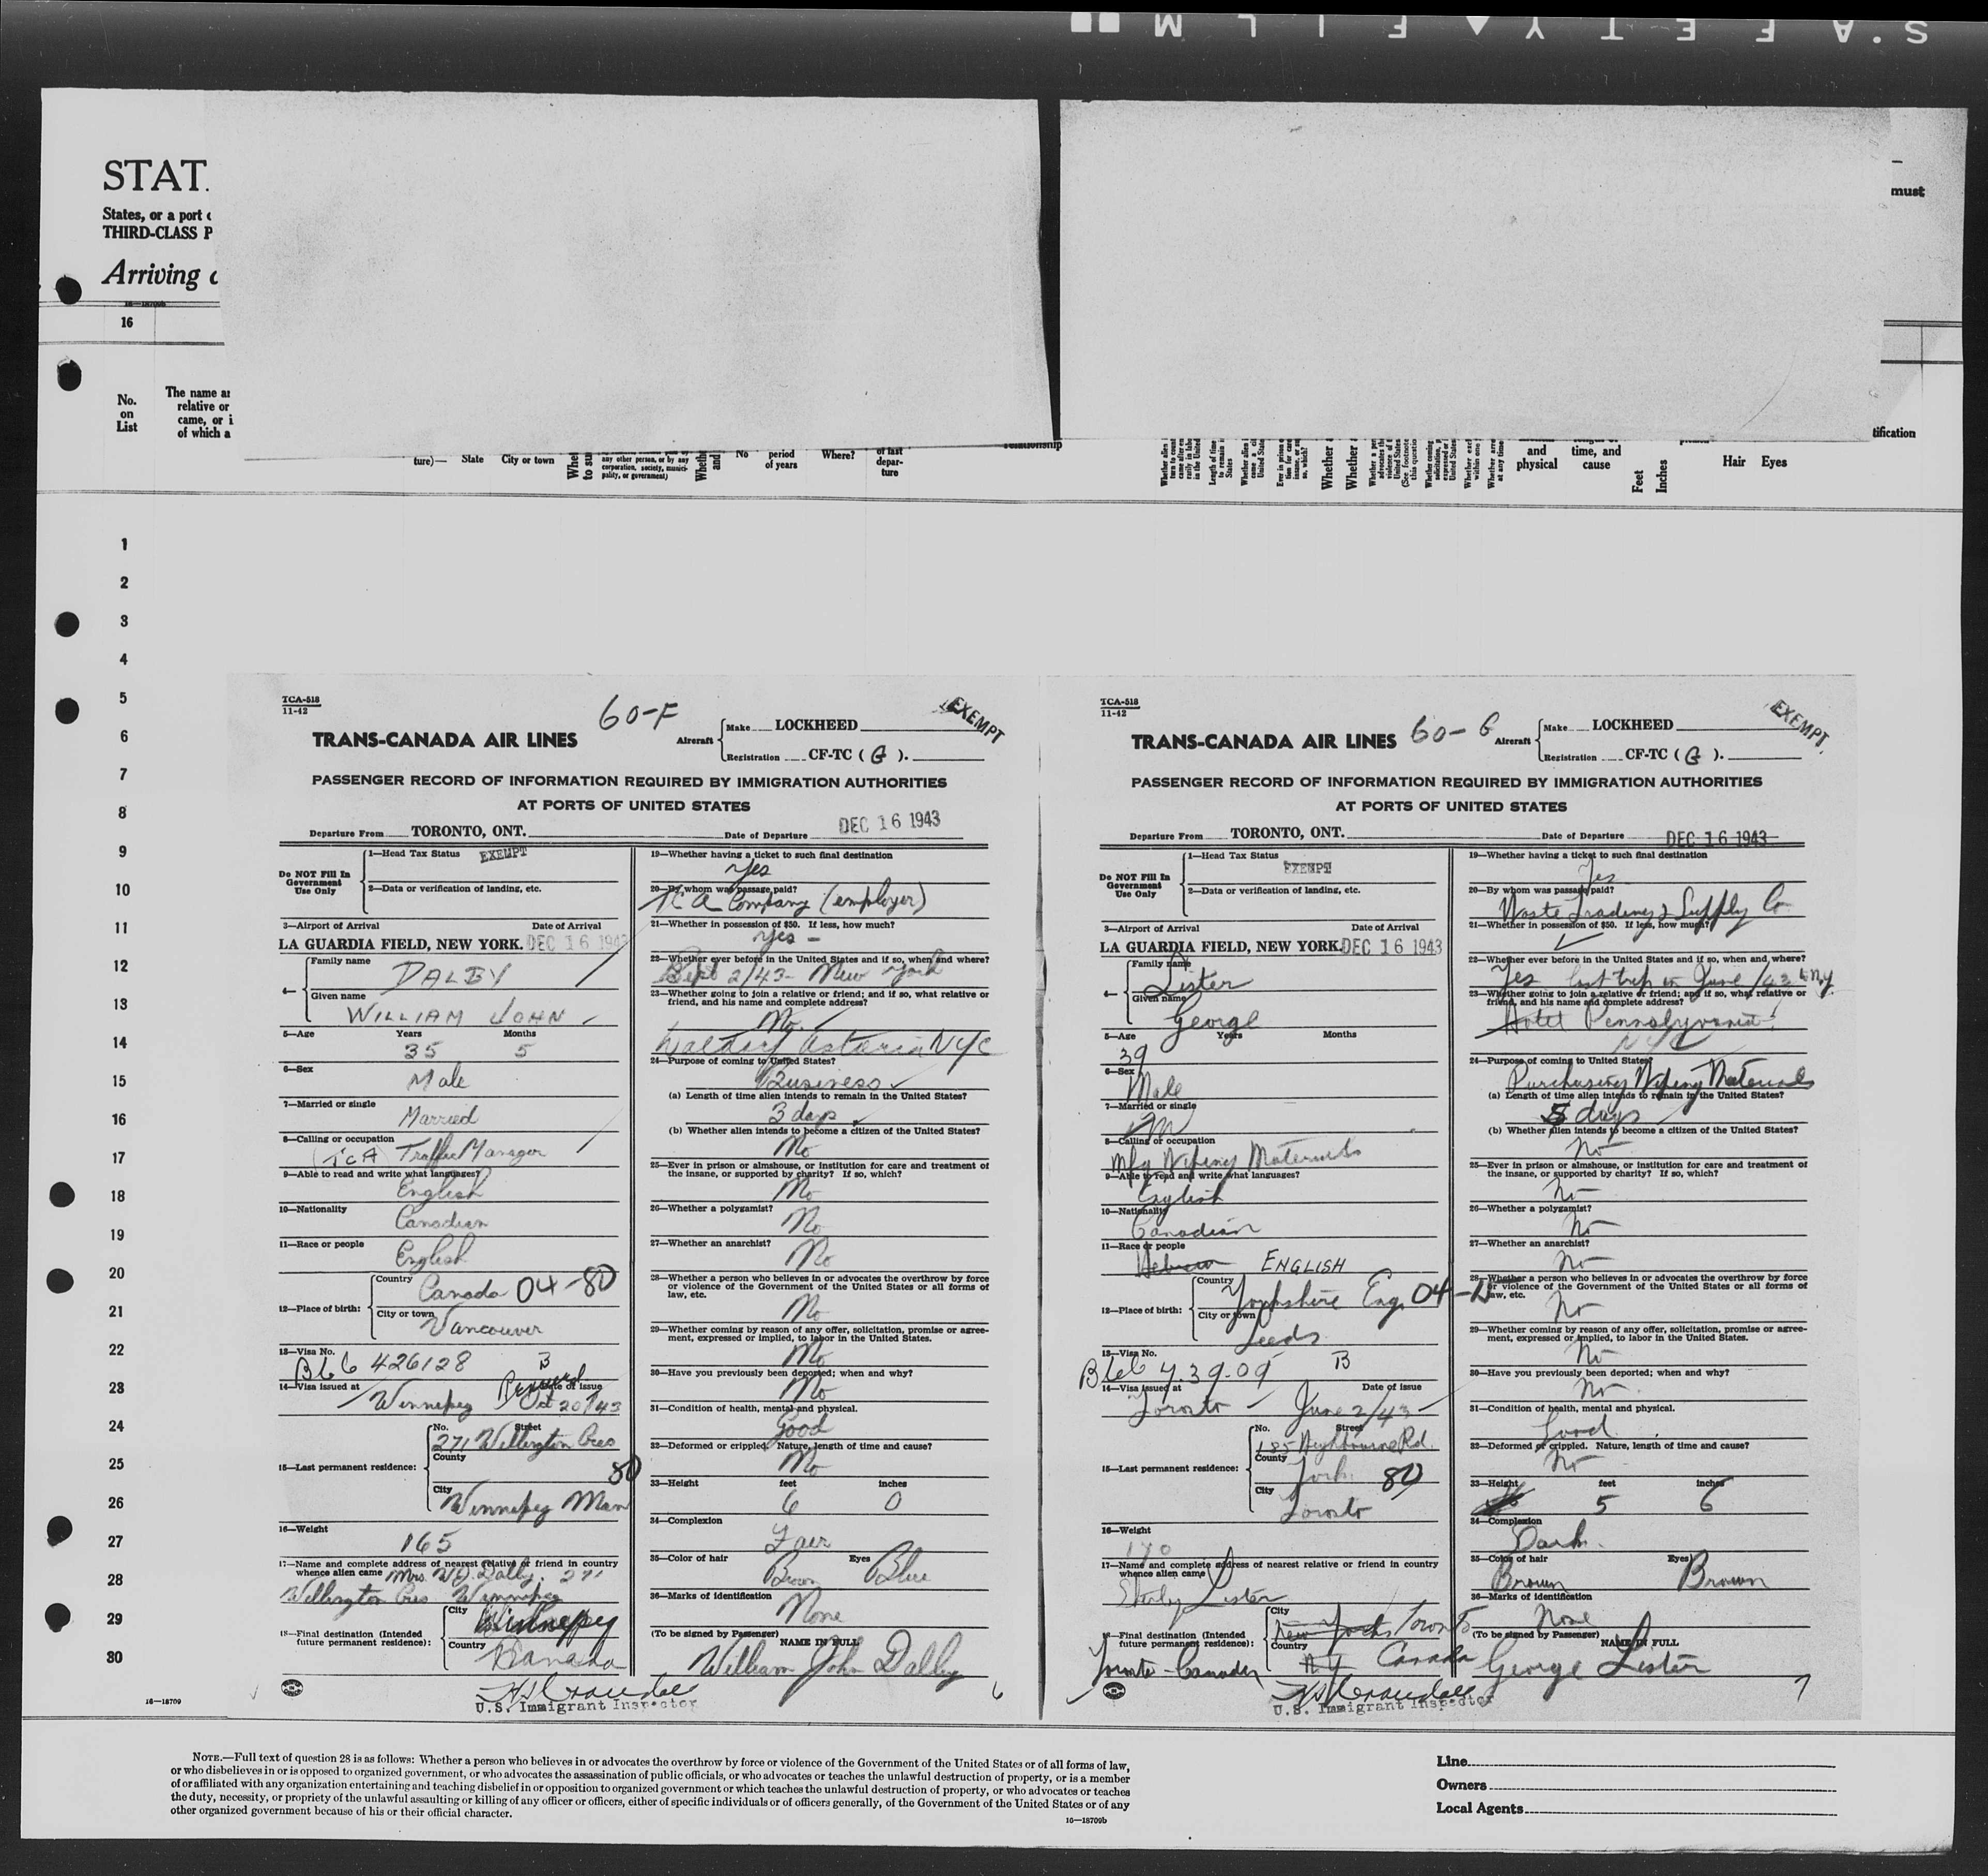 S.AFETY FILM
STAT
States, or a port
THIRD-CLASS P
Arriving
must
16
No.
on
List
The name
relative or
came, or
of which a
ture)—
State
City or town
any other person, or by any
corporation, society, munici-
pality, or government)
No
period
of years
Where?
of last
depar-
ture
relationship
Whether
Whether
and
physical
time, and
cause
Feet
Inches
Hair Eyes
tification
1
2
3
4
5
6
7
8
9
10
11
12
13
14
15
16
17
18
19
20
21
22
23
24
25
26
27
28
29
30
TCA-518
11-42
60-F
EXEMPT
TRANS-CANADA AIR LINES
Aircraft
Make LOCKHEED
Registration CF-TC ( G ).
PASSENGER RECORD OF INFORMATION REQUIRED BY IMMIGRATION AUTHORITIES
AT PORTS OF UNITED STATES
Departure From TORONTO, ONT. Date of Departure DEC 16 1943
Do NOT Fill In
Government
Use Only
1—Head Tax Status EXEMPT
2—Data or verification of landing, etc.
3—Airport of Arrival Date of Arrival
LA GUARDIA FIELD, NEW YORK. DEC 16 1943
4—
Family name DALBY
Given name WILLIAM JOHN
5—Age Years Months
35 5
6—Sex
Male
7—Married or single
Married
8—Calling or occupation
(TCA) Traffic Manager
9—Able to read and write what languages?
English
10—Nationality
Canadian
11—Race or people
English
12—Place of birth:
Country Canada 04-80
City or town Vancouver
13—Visa No.
B66 426128 B
14—Visa issued at Date of issue
Winnipeg Renewed Oct 20/43
15—Last permanent residence:
No. Street
271 Wellington Cres
County 80
City Winnipeg Man
16—Weight
165
17—Name and complete address of nearest relative or friend in country
whence alien came Mrs. W.J. Dalby. 271
Wellington Cres Winnipeg
18—Final destination (Intended
future permanent residence):
City Winnipeg
Country Canada
19—Whether having a ticket to such final destination
Yes
20—By whom was passage paid?
TCA Company (employer)
21—Whether in possession of $50. If less, how much?
Yes –
22—Whether ever before in the United States and if so, when and where?
Sept 2/43 - New York
23—Whether going to join a relative or friend; and if so, what relative or
friend, and his name and complete address?
No.
Waldorf Astoria NYC
24—Purpose of coming to United States?
Business
(a) Length of time alien intends to remain in the United States?
3 days
(b) Whether alien intends to become a citizen of the United States?
No
25—Ever in prison or almshouse, or institution for care and treatment of
the insane, or supported by charity? If so, which?
No
26—Whether a polygamist?
No
27—Whether an anarchist?
No
28—Whether a person who believes in or advocates the overthrow by force
or violence of the Government of the United States or all forms of
law, etc.
No
29—Whether coming by reason of any offer, solicitation, promise or agree-
ment, expressed or implied, to labor in the United States.
No
30—Have you previously been deported; when and why?
No
31—Condition of health, mental and physical.
Good
32—Deformed or crippled. Nature, length of time and cause?
No
33—Height feet inches
6 0
34—Complexion
Fair
35—Color of hair Eyes
Brown Blue
36—Marks of identification
None
(To be signed by Passenger) NAME IN FULL
William John Dalby
U.S. Immigrant Inspector
6
TCA-518
11-42
60-G
EXEMPT
TRANS-CANADA AIR LINES
Aircraft
Make LOCKHEED
Registration CF-TC ( G ).
PASSENGER RECORD OF INFORMATION REQUIRED BY IMMIGRATION AUTHORITIES
AT PORTS OF UNITED STATES
Departure From TORONTO, ONT. Date of Departure DEC 16 1943
Do NOT Fill In
Government
Use Only
1—Head Tax Status
EXEMPT
2—Data or verification of landing, etc.
3—Airport of Arrival Date of Arrival
LA GUARDIA FIELD, NEW YORK. DEC 16 1943
4—
Family name Lister
Given name George
5—Age Years Months
39
6—Sex
Male
7—Married or single
M
8—Calling or occupation
Mfg Wiping Materials
9—Able to read and write what languages?
English
10—Nationality
Canadian
11—Race or people
Hebrew ENGLISH
12—Place of birth:
Country Yorkshire Eng. 04-
City or town Leeds
13—Visa No.
B
14—Visa issued at Date of issue
Toronto – June 2/43 –
15—Last permanent residence:
No. Street
185 Rd
County York 80
City Toronto
16—Weight
170
17—Name and complete address of nearest relative or friend in country
whence alien came
Lister
18—Final destination (Intended
future permanent residence):
Toronto - Canada
City New York Toronto
Country N.Y. Canada
19—Whether having a ticket to such final destination
Yes
20—By whom was passage paid?
Waste Trading & Supply Co
21—Whether in possession of $50. If less, how much?
22—Whether ever before in the United States and if so, when and where?
Yes last trip in June /43 to NY.
23—Whether going to join a relative or friend; and if so, what relative or
friend, and his name and complete address?
Hotel Pennsylvania
NYC
24—Purpose of coming to United States?
Purchasing Wiping Materials
(a) Length of time alien intends to remain in the United States?
5 days
(b) Whether alien intends to become a citizen of the United States?
No
25—Ever in prison or almshouse, or institution for care and treatment of
the insane, or supported by charity? If so, which?
No
26—Whether a polygamist?
No
27—Whether an anarchist?
No
28—Whether a person who believes in or advocates the overthrow by force
or violence of the Government of the United States or all forms of
law, etc.
No
29—Whether coming by reason of any offer, solicitation, promise or agree-
ment, expressed or implied, to labor in the United States.
No
30—Have you previously been deported; when and why?
No.
31—Condition of health, mental and physical.
Good
32—Deformed or crippled. Nature, length of time and cause?
No
33—Height feet inches
5 6
34—Complexion
Dark.
35—Color of hair Eyes
Brown Brown
36—Marks of identification
None
(To be signed by Passenger) NAME IN FULL
George Lister
U.S. Immigrant Inspector
7
16—18709
NOTE.—Full text of question 28 is as follows: Whether a person who believes in or advocates the overthrow by force or violence of the Government of the United States or of all forms of law,
or who disbelieves in or is opposed to organized government, or who advocates the assassination of public officials, or who advocates or teaches the unlawful destruction of property, or is a member
of or affiliated with any organization entertaining and teaching disbelief in or opposition to organized government or which teaches the unlawful destruction of property, or who advocates or teaches
the duty, necessity, or propriety of the unlawful assaulting or killing of any officer or officers, either of specific individuals or of officers generally, of the Government of the United States or of any
other organized government because of his or their official character.
16—18709b
Line
Owners
Local Agents